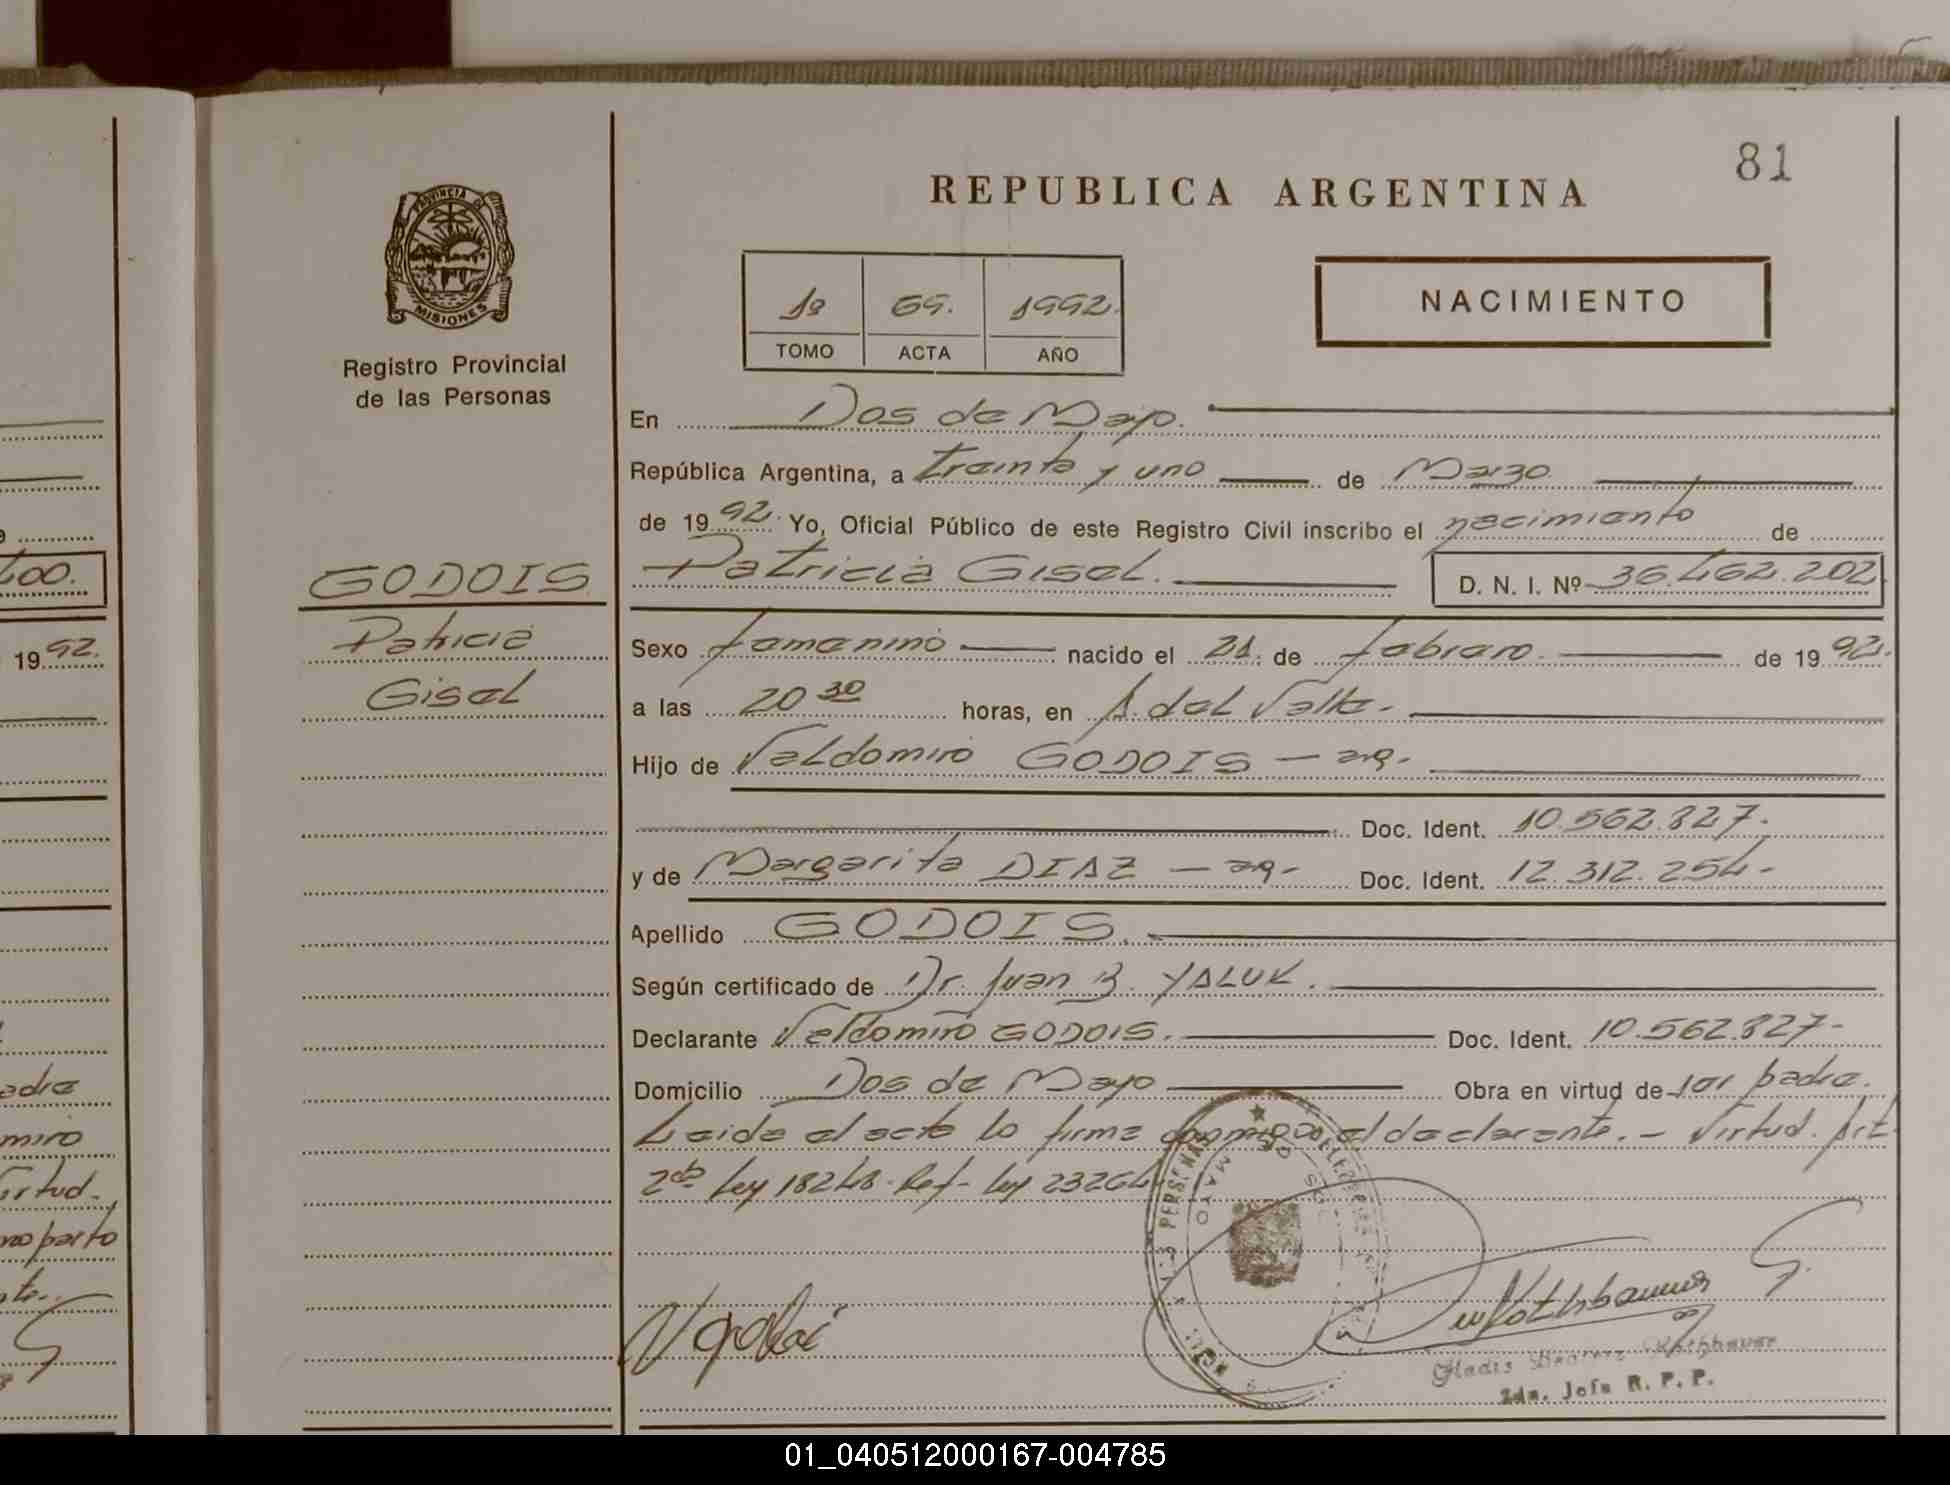 81
REPUBLICA ARGENTINA
PROVINCIA DE
MISIONES
Registro Provincial
de las Personas
1º 69. 1992.
TOMO ACTA AÑO
NACIMIENTO
En Dos de Mayo.
República Argentina, a treinta y uno de Marzo
de 1992. Yo, Oficial Público de este Registro Civil inscribo el nacimiento de
GODOIS Patricia Gisel. D. N. I. Nº 36.462.202
Patricia
Gisel
Sexo femenino nacido el 21. de febrero. de 1992.
a las 20 30 horas, en A. del Valle.
Hijo de Valdomiro GODOIS - arg.
Doc. Ident. 10.562.827.
y de Margarita DIAZ - arg- Doc. Ident. 12.312.254-
Apellido GODOIS.
Según certificado de Dr. Juan B. YALUK.
Declarante Valdomiro GODOIS. Doc. Ident. 10.562.827-
Domicilio Dos de Mayo Obra en virtud de ser padre.
Leida el acta la firma conmigo el declarante. - Virtud. Art.
2do Ley 18248. Ref- Ley 23264
Gladis Beatriz Rothbauer
2da. Jefa R. P. P.
too.
1992.
adre
miro
irtud.
no parto
te.
01_040512000167-004785